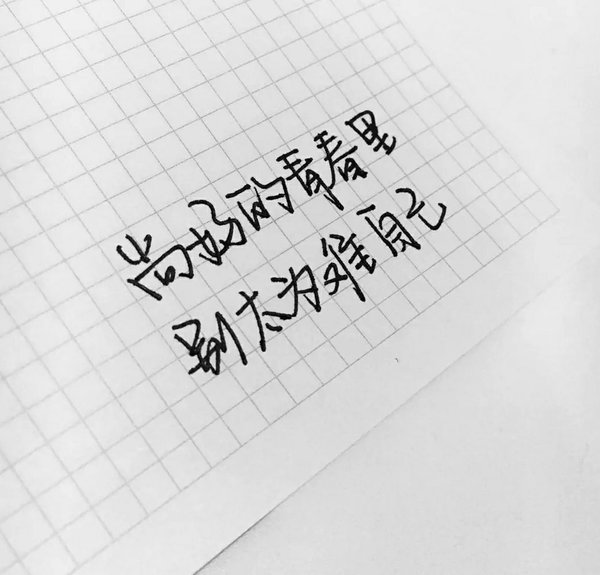 尚好的青春里
别太为难自己